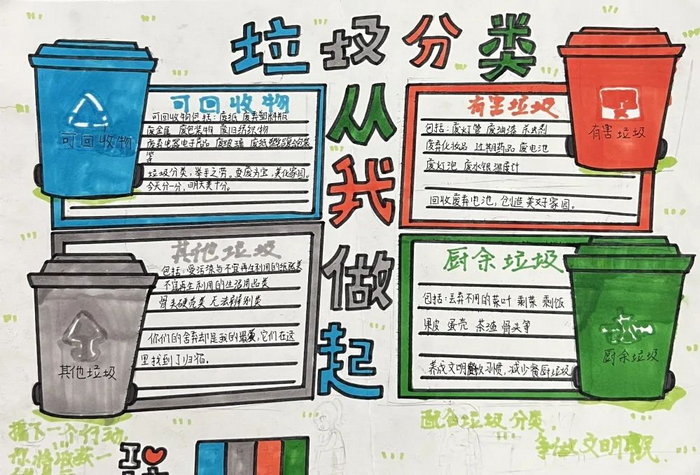 垃圾分类
从我做起
可回收物
可回收物包括：废纸 废弃塑料瓶
废金属 废包装物 废旧纺织物
废弃电器电子产品 废玻璃 废纸
等
垃圾分类，举手之劳，变废为宝，美化家园。
今天分一分，明天美十分。
可回收物
有害垃圾
包括：废灯管 废油漆 杀虫剂
废弃化妆品 过期药品 废电池
废灯泡 废水银温度计
回收废弃电池，创造美好家园。
有害垃圾
其他垃圾
包括：受污染与不宜再生利用的纸张类
不宜再生利用的生活用品类
骨头硬壳类 无法辨别类
你们的舍弃却是我的最爱，它们在这
里找到了归宿。
其他垃圾
厨余垃圾
包括：丢弃不用的茶叶 剩菜 剩饭
果皮 蛋壳 茶渣 骨头等
养成文明餐饮习惯，减少餐厨垃圾
厨余垃圾
配合垃圾分类，
争做文明市民